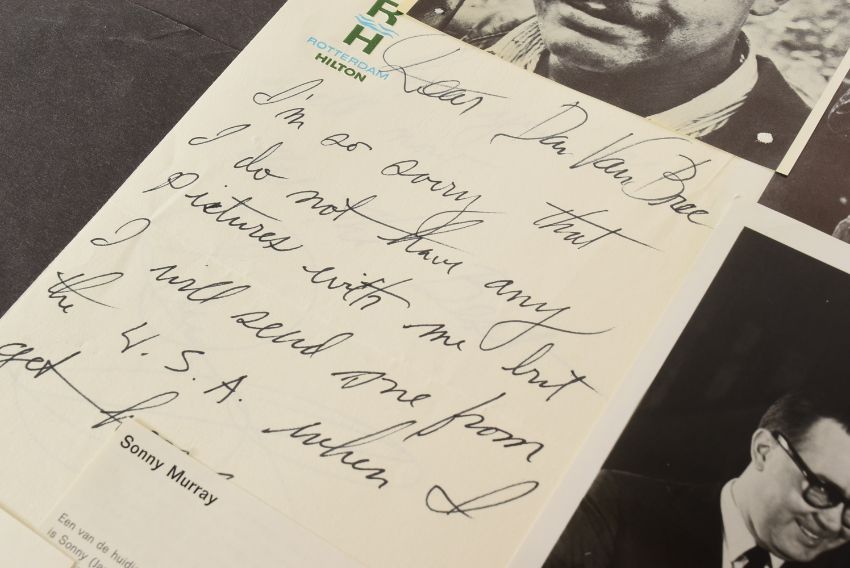 RH
ROTTERDAM
HILTON
Dear Dan Van Bree
I'm so sorry that
I do not have any
pictures with me but
I will send one from
the U.S.A. when I
get
Sonny Murray
Een van de
is Sonny